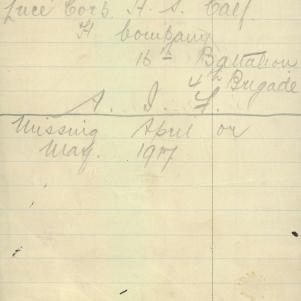 Lnce Corp A. S. Calf
A Company
16th Battalion
4th Brigade
A. I. F.
Missing April or
May. 1917